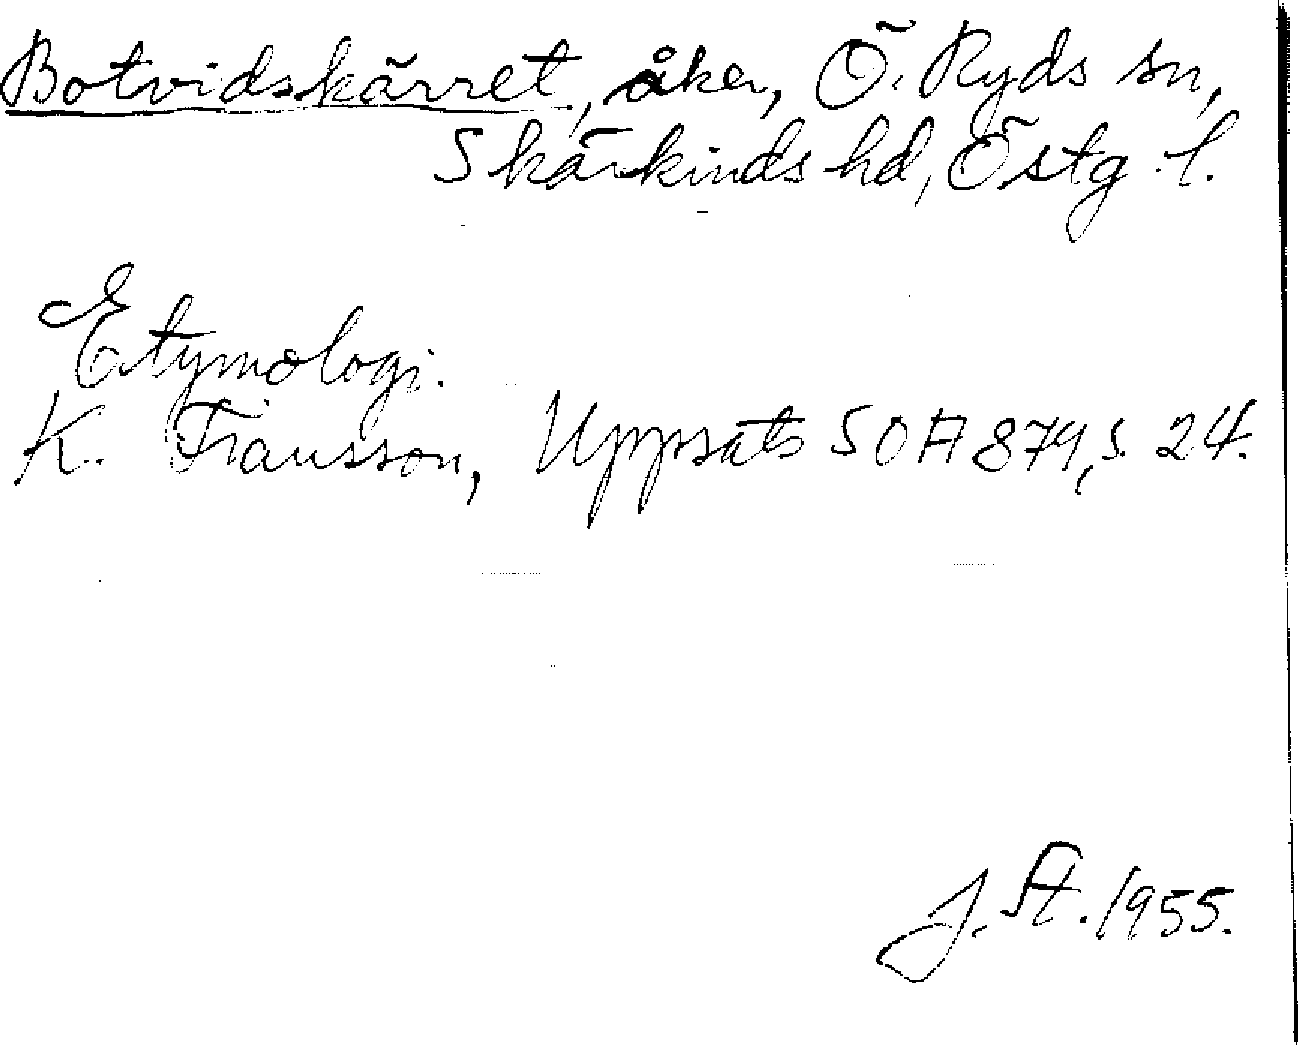 Botvidskärret, åker, Ö. Ryds sn,
Skärkinds hd, Östg. l.
Etymologi.
K. Fransson, Uppsats SOA 874, s. 24.
J. St. 1955.